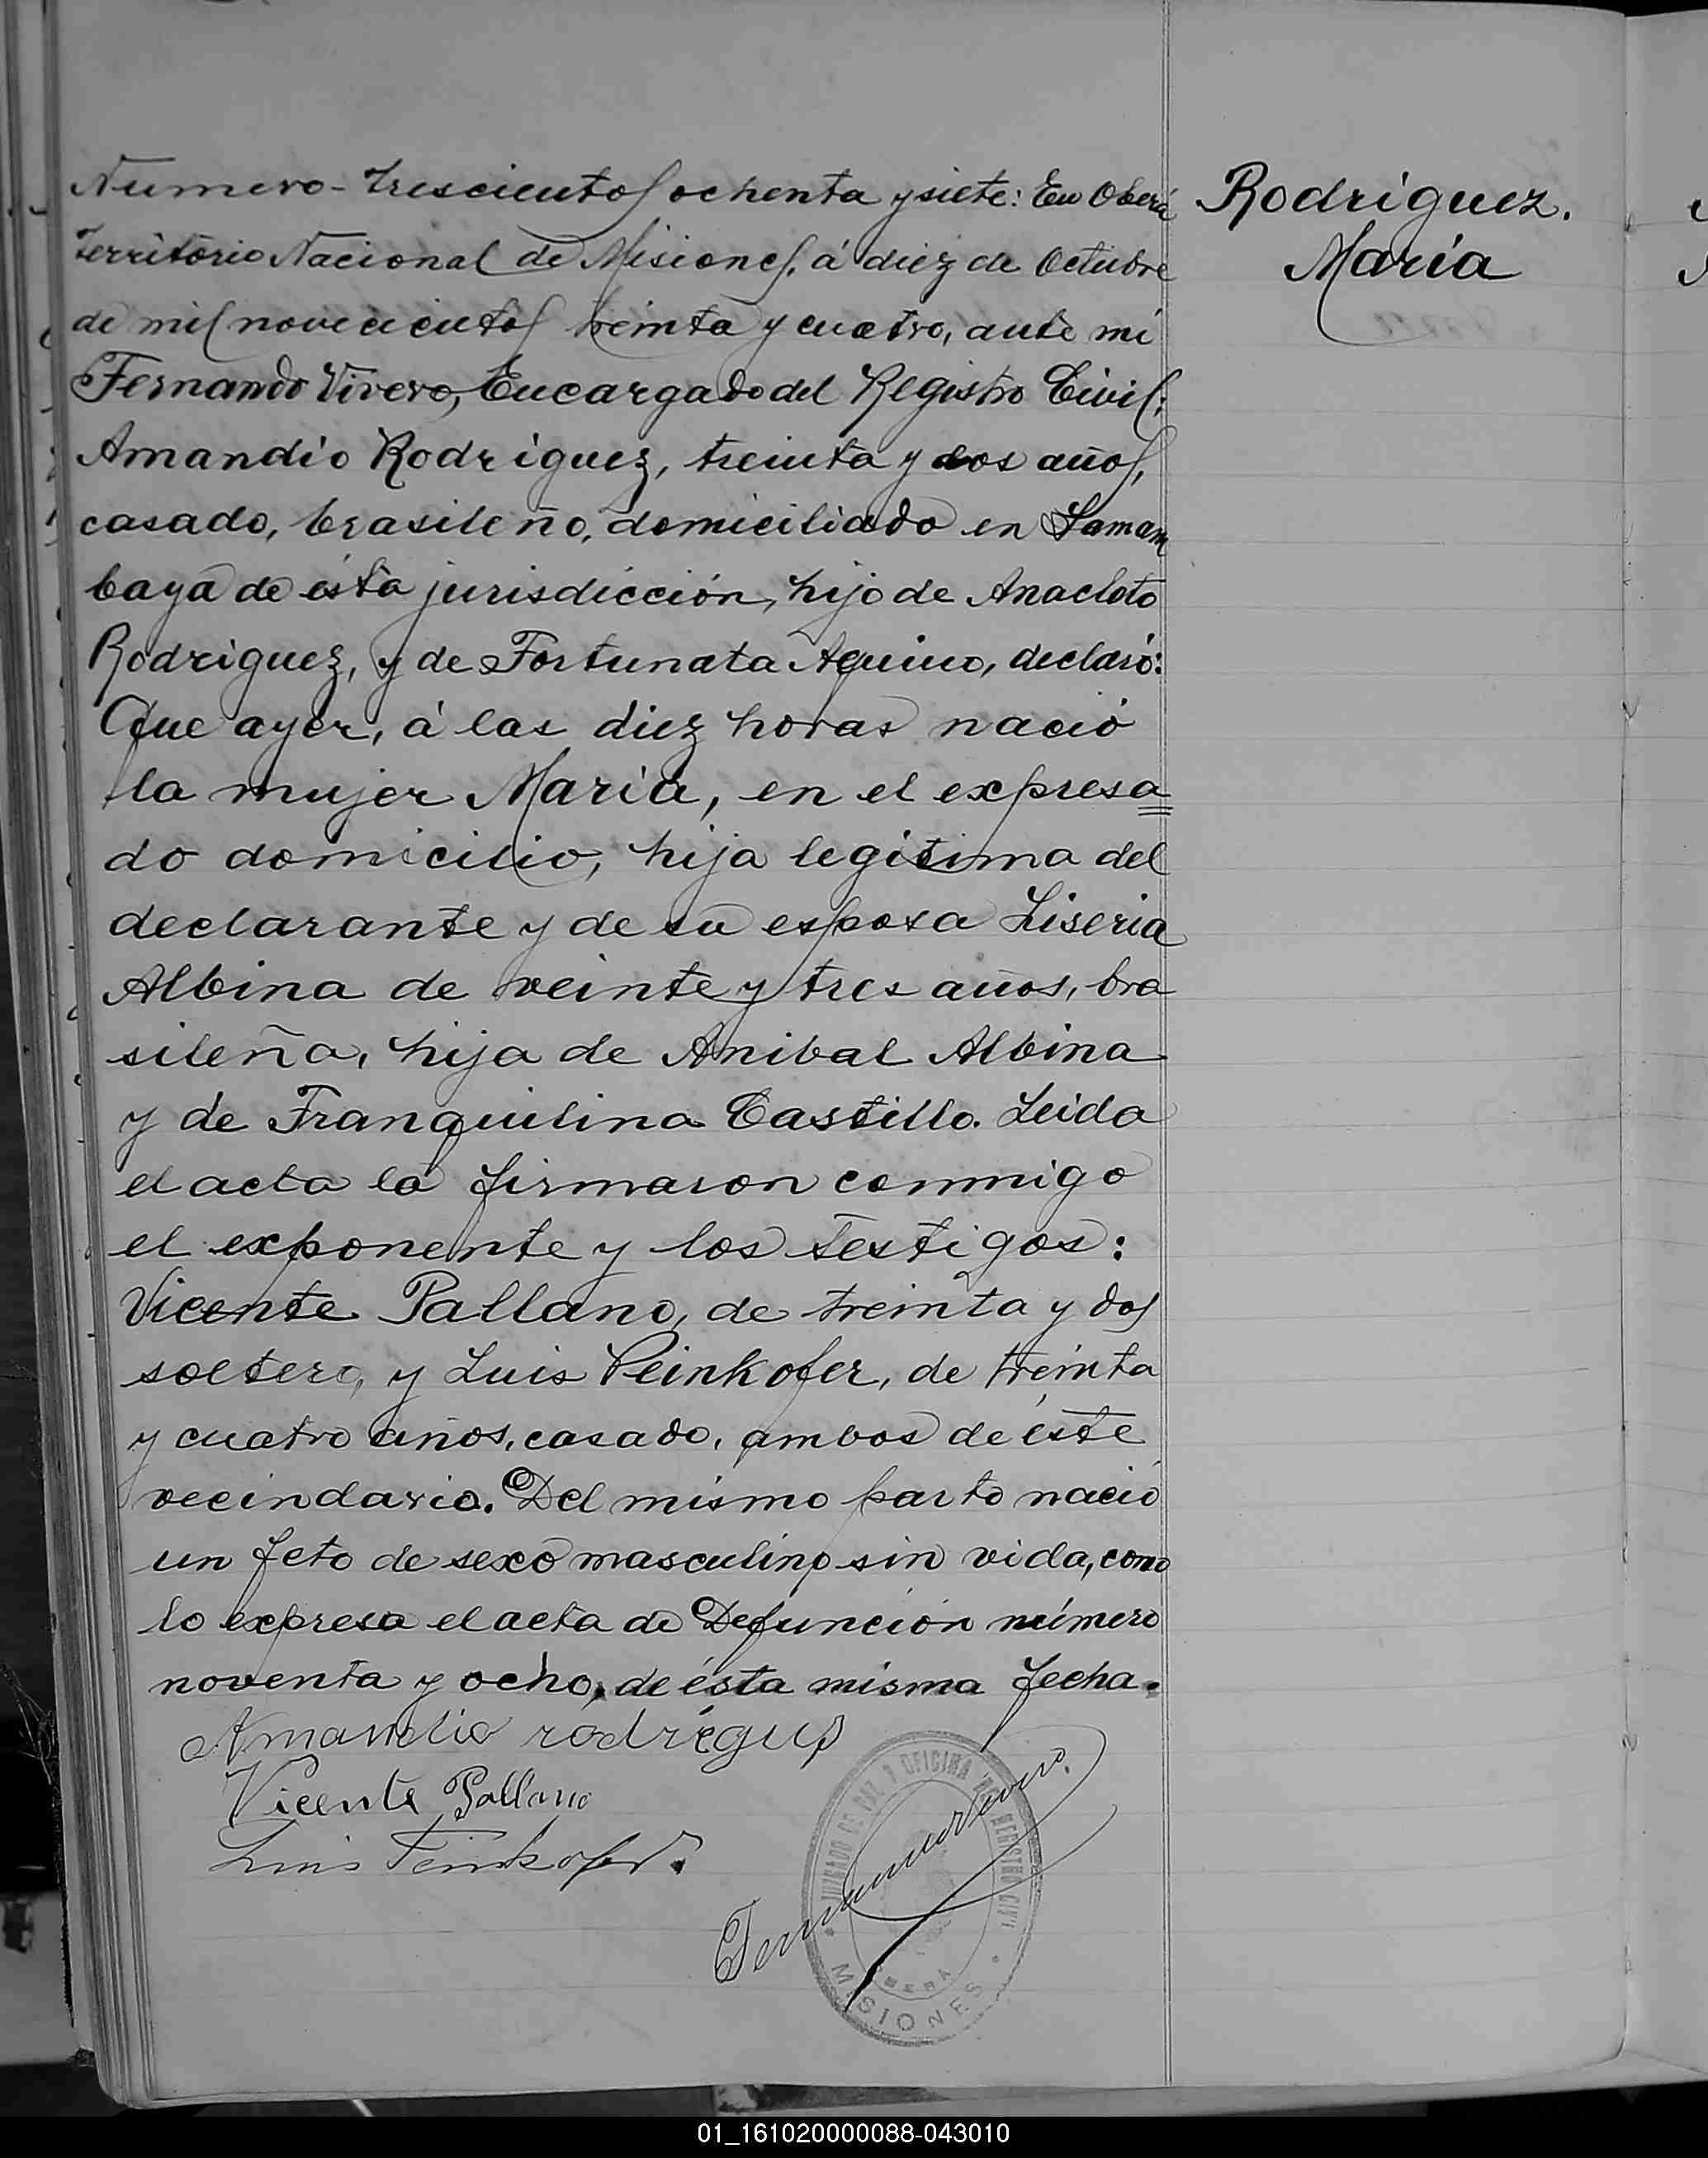 Numero - trescientos ochenta y siete: En Oberá
Territorio Nacional de Misiones, á diez de Octubre
de mil novecientos treinta y cuatro, ante mi
Fernando Vivero, Encargado del Registro Civil:
Amandio Rodriguez, treinta y dos años,
casado, brasileño, domiciliado en Samam
baya de ésta jurisdicción, hijo de Anacleto
Rodriguez, y de Fortunata Aquino, declaró:
Que ayer, á las diez horas nació
la mujer María, en el expresa
do domicilio, hija legitima del
declarante y de su esposa Liseria
Albina de veinte y tres años, bra
sileña, hija de Anibal Albina
y de Franquilina Castillo. Leida
el acta la firmaron conmigo
el exponente y los testigos:
Vicente Pallano, de treinta y dos
soltero, y Luis Peinkofer, de treinta
y cuatro años, casado, ambos de éste
vecindario. Del mismo parto nació
un feto de sexo masculino sin vida, como
lo expresa el acta de Defunción número
noventa y ocho, de ésta misma fecha.
Amandio rodrégus
Vicente Pallano
Luis Peinkofer.
Rodriguez.
María
JUZGADO DE PAZ Y OFICINA DEL REGISTRO CIVIL
OBERÁ
MISIONES
01_161020000088-043010